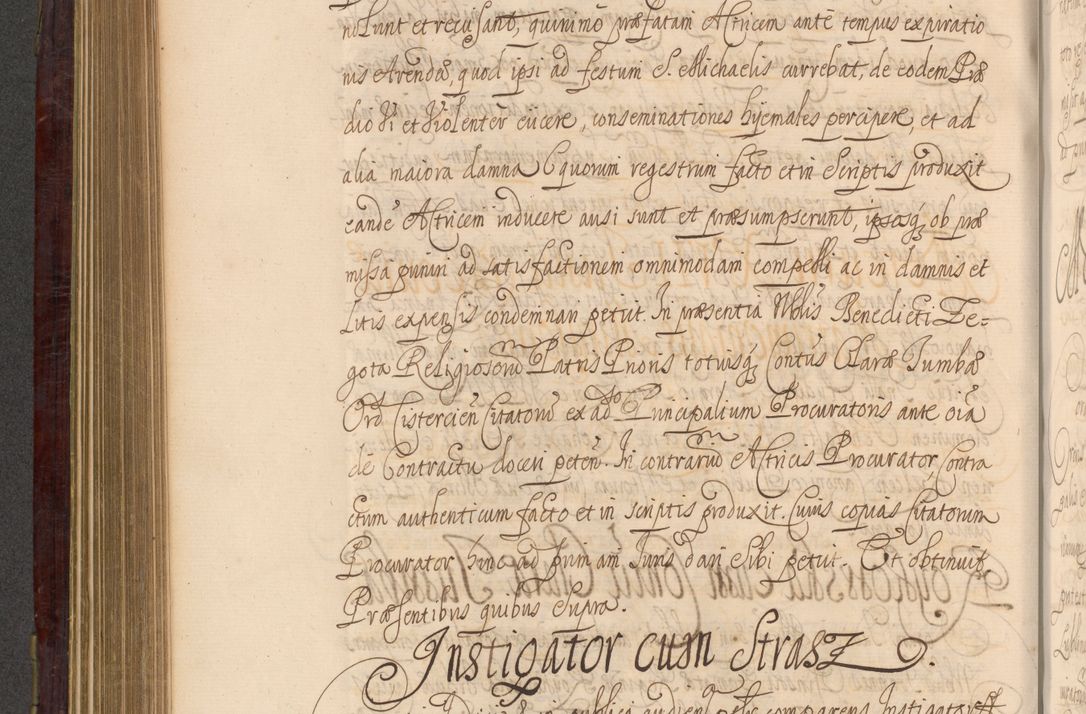 nolunt et recusant, quinimo præfatam Actricem ante tempus expiratio
nis Arendæ, quod ipsi ad festum S. Michaelis currebat, de eodem Præ
dio Vi et Violenter eiicere, conseminationes hyemales percipere, et ad
alia maiora damna (quorum regestrum facto et in Scriptis produxit
eandē Actricem inducere ausi sunt et præsumpserunt, ipsosq, ob præ
missa puniri ad satisfactionem omnimodam compelli ac in damnis et
litis expensis condemnari petiit. In præsentia Nblis Benedicti Ze=
gota Religiosorū Patris Prioris totiusq, Contūs Claræ Tumbæ
Ord Cistercien Citatorū ex adto Principalium Procuratoris ante oīa
de Contractu doceri peten. In contrariū Actricis Procurator Contra
ctum authenticum facto et in scriptis produxit. Cuius copias Citatorum
Procurator hinc ad primam Juris dari Sibi petiit. Et obtinuit.
Præsentibus quibus Supra.
Instigator cum Strasz.
in publica audien comparens Instigator